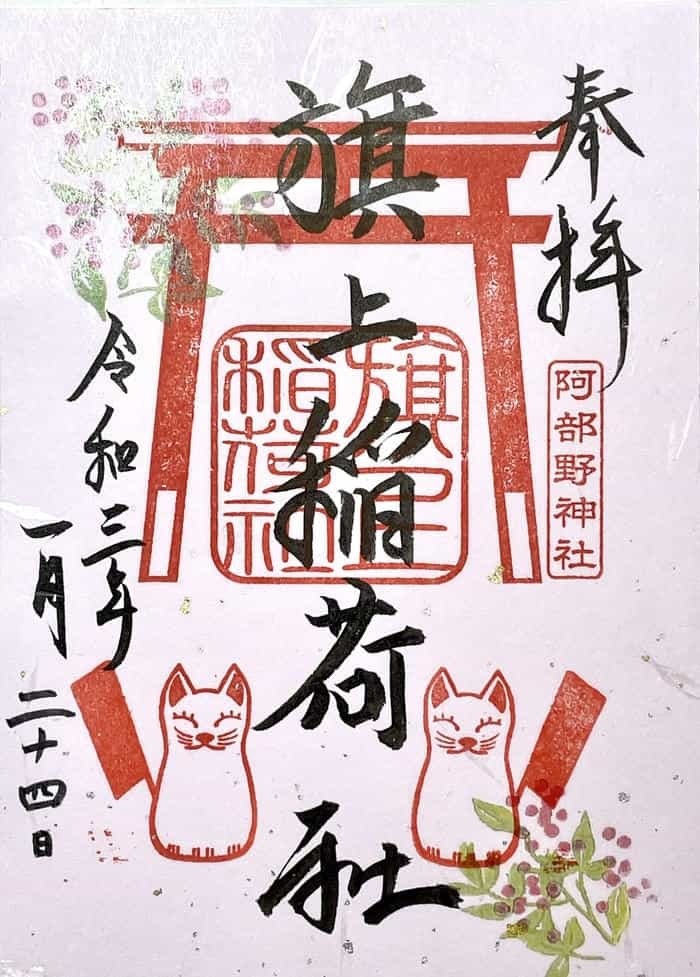 奉拝
阿部野神社
旗上稲荷社
旗上
稲荷社
令和三年
一月二十四日